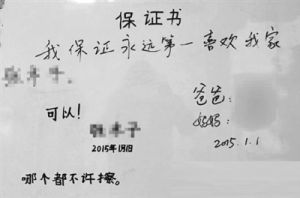 保证书
我保证永远第一喜欢我家
可以！
爸爸：
妈妈：
2015年1月1日
2015.1.1
哪个都不许擦。